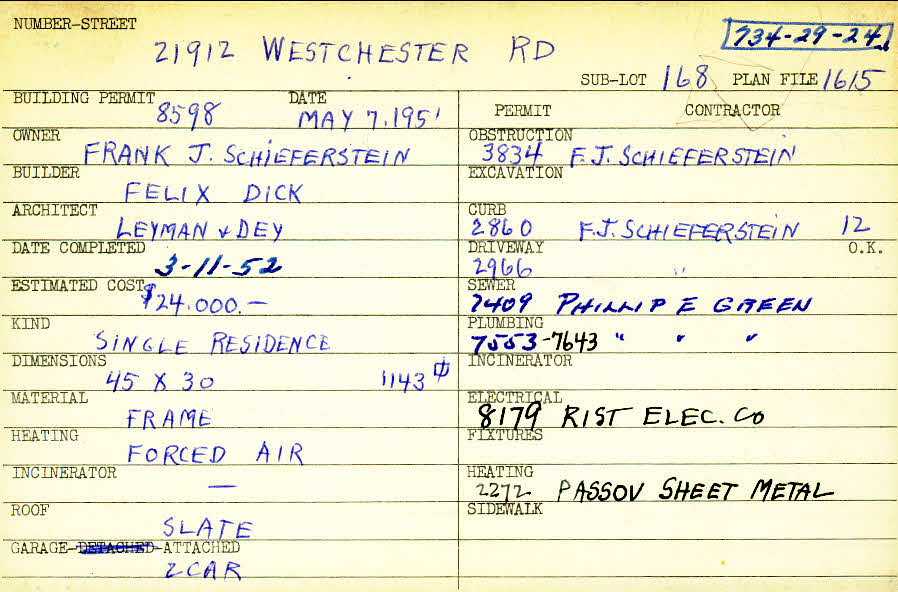 NUMBER-STREET
21912 WESTCHESTER RD
734-29-24
SUB-LOT 168 PLAN FILE 1615
BUILDING PERMIT 8598 DATE MAY 7, 1951
OWNER FRANK J. SCHIEFERSTEIN
BUILDER FELIX DICK
ARCHITECT LEYMAN + DEY
DATE COMPLETED 3-11-52
ESTIMATED COST $24.000.—
KIND SINGLE RESIDENCE
DIMENSIONS 45 X 30 1143
MATERIAL FRAME
HEATING FORCED AIR
INCINERATOR —
ROOF SLATE
GARAGE-DETACHED-ATTACHED
2 CAR
PERMIT CONTRACTOR
OBSTRUCTION 3834 F.J. SCHIEFERSTEIN
EXCAVATION
CURB 2860 F.J. SCHIEFERSTEIN 12
DRIVEWAY 2966 " O.K.
SEWER 7409 PHILLIP E GREEN
PLUMBING 7553-7643 " " "
INCINERATOR
ELECTRICAL 8179 RIST ELEC. CO
FIXTURES
HEATING 2272 PASSOV SHEET METAL
SIDEWALK